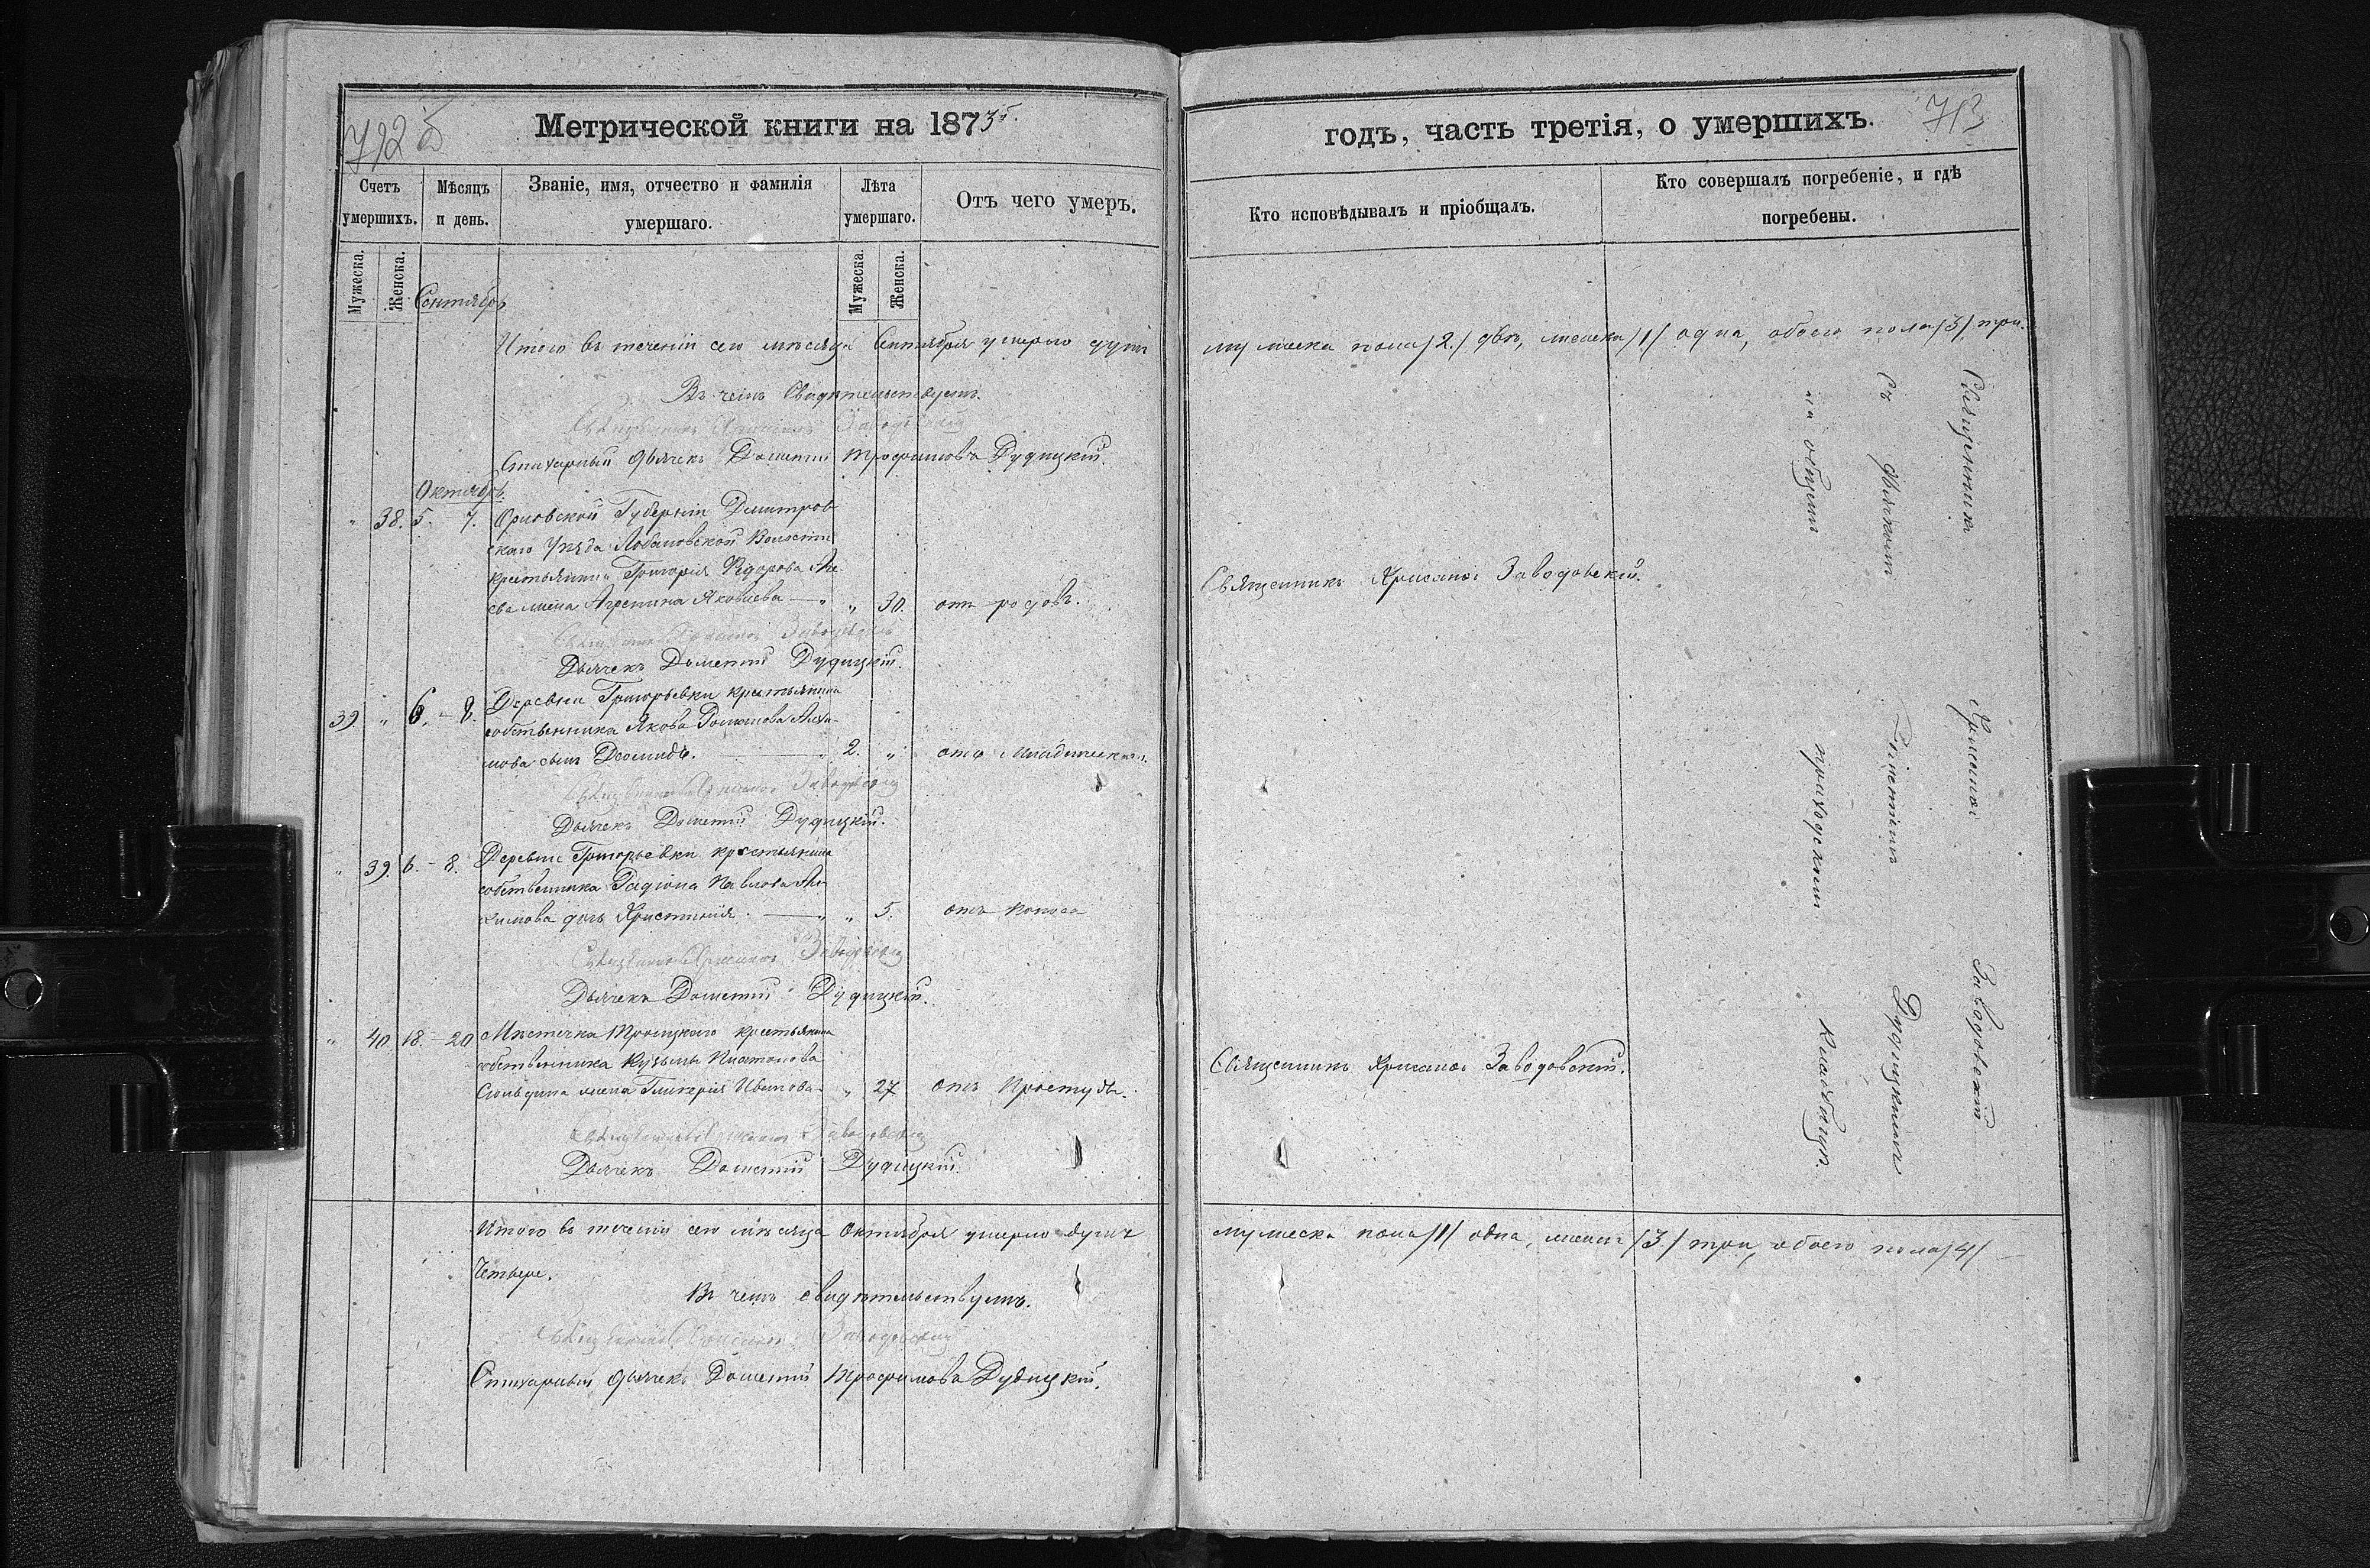 712 б
Метрической книги на 1873й.
Счетъ умершихъ.
Мѣсяцъ и день.
Званіе, имя, отчество и фамилія умершаго.
Лѣта умершаго.
Отъ чего умеръ.
Мужеска.
Женска.
Мужеска.
Женска.
Сентябрь
Итого въ теченіи сего мѣсяца Сентября умерло душъ
Въ чемъ Свидѣтельствуемъ.
Священникъ Хрисанѳъ Заводовскій
Стихарный дьячекъ Дометій Трофимовъ Дудицкій.
Октябрь.
" 38. 5. 7. Орловской Губерніи Дмитров
скаго Уѣзда Лобановской Волости
крестьянина Григорія Ѳедорова
ева жена Агрепина Яковлева — " " 30. отъ родовъ.
Священникъ Хрисанѳъ Заводовскій
Дьячекъ Дометій Дудицкій.
39. " 6. - 8. Деревни Григорьевки крестьянина
собственника Якова Романова
мова сынъ Деомидъ. — 2. " отъ Младенческой.
Священникъ Хрисанѳъ Заводовскій
Дьячекъ Дометій Дудицкій.
" 39. 6 - 8. Деревни Григорьевки крестьянина
собственника Радіона Павлова
кимова дочь Христинія. — " " 5. отъ поноса
Священникъ Хрисанѳъ Заводовскій
Дьячекъ Дометій Дудицкій.
" 40. 18. - 20 Мѣстечка Троицкаго крестьянина
собственника Кузьмы Платонова
жена Гликерія Иванова — " 27 отъ Простуды.
Священникъ Хрисанѳъ Заводовскій
Дьячекъ Дометій Дудицкій.
Итого въ теченіи сего мѣсяца Октября умерло душъ
Четыре.
Въ чемъ свидѣтельствуемъ.
Священникъ Хрисанѳъ Заводовскій
Стихарный дьячекъ Дометій Трофимовъ Дудицкій.
годъ, часть третія, о умершихъ.
713
Кто исповѣдывалъ и пріобщалъ.
Кто совершалъ погребеніе, и гдѣ погребены.
мужеска пола /2/ двѣ, женска /1/ одна, обоего пола /3/ три.
Священникъ Хрисанѳъ Заводовскій.
Священникъ Хрисанѳъ Заводовскій.
Священникъ Хрисанѳъ Заводовскій
съ дьячкомъ Дудицкимъ
на общемъ приходскомъ кладбищѣ.
мужеска пола /1/ одна, женск /3/ три, обоего пола /4/ —